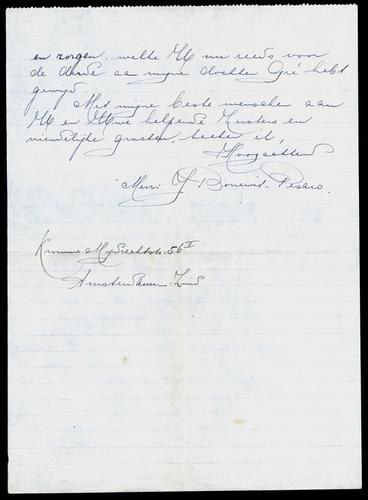 en zorgen, welke U nu reeds voor
de derde aan mijne dochter Gré hebt
gewijd.
Met mijne beste wenschen aan
U en Uwe helpende Zusters en
vriendelijke groeten, teeken ik,
Hoogachtend
Mevr. Bonewit-Pesaro.
Kromme Mydrechtstr. 56 I
Amsterdam-Zuid